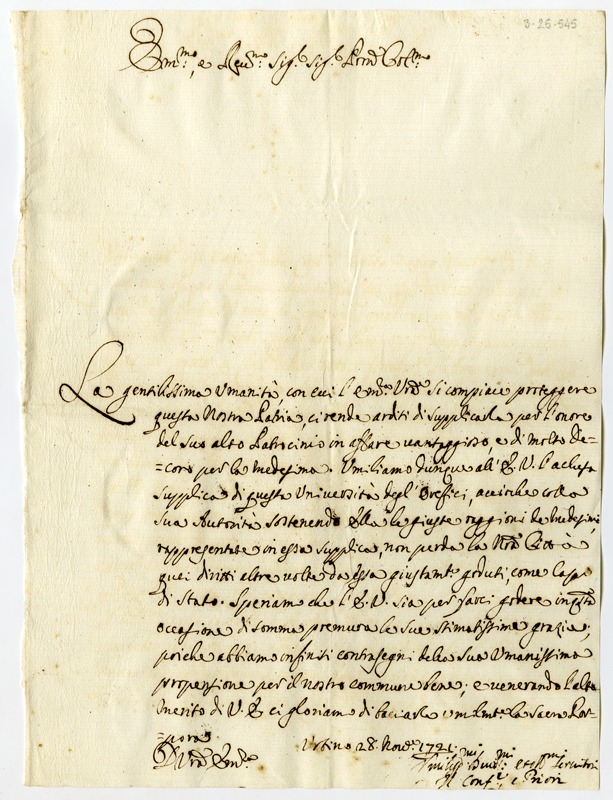 3-25-545
Em.mo, e Rev.mo Sig.r Sig.r Pron Col.mo
La gentilissima Umanità, con cui l'Em.za Vra si compiace proteggere
questa Nostra Patria, ci rende arditi di supplicarla per l'onore
del suo alto Patrocinio in affare vantaggioso, e di molto de=
=coro per la medesima. Umiliamo dunque all'E.V. l'acclusa
supplica di questa Università degl'Orefici, acciòche colla
sua Autorità sostenendo Ella le giuste raggioni de medesimi,
rappresentate in essa supplica, non perda la Nra Città
quei diritti altre volte da essa giustam.te goduti, come Capo
di Stato. Speriamo che l'E.V. sia per farci godere in qsta
occasione di somma premura le sue stimatissime grazie;
poiche abbiamo infiniti contrasegni della sua Umanissima
propensione per il nostro commune bene; e venerando l'alto
merito di V.E. ci gloriamo di baciarle um.lmte la Sacra Por=
=pora.
Di Vra Em.za
Urbino 28. Nov.re 1721.
Umiliss.mi Div.mi et Obl.mi Servitori
Il Conf.re e Priori